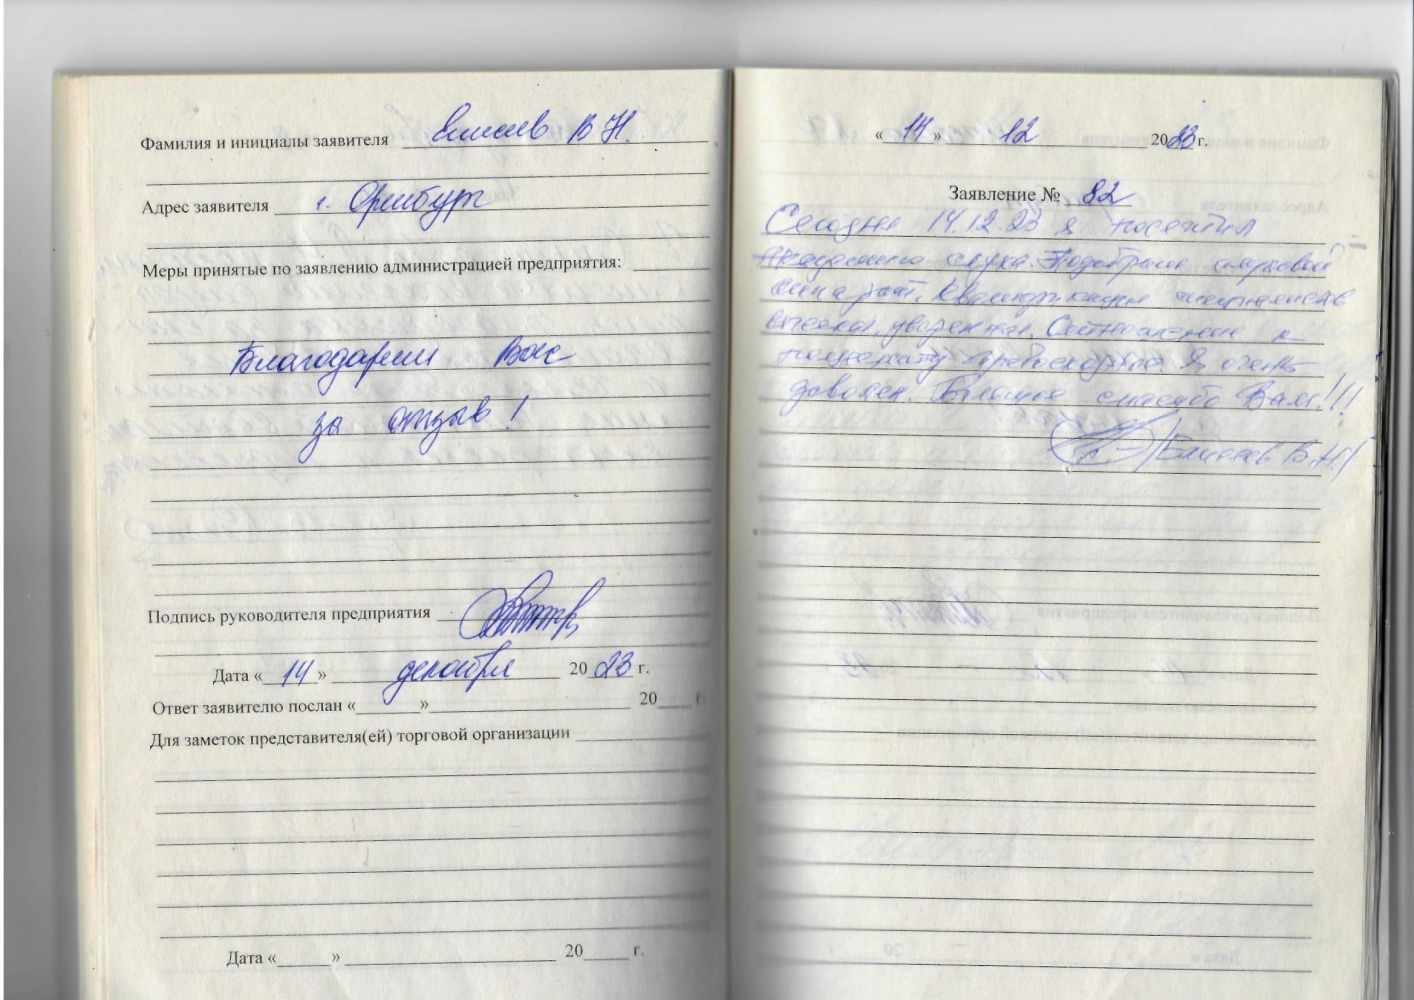 Фамилия и инициалы заявителя В Н.
Адрес заявителя г. Оренбург
Меры принятые по заявлению администрацией предприятия:
Благодарим Вас
за отзыв!
Подпись руководителя предприятия
Дата «14» декабря 2023 г.
Ответ заявителю послан «  » 20 г.
Для заметок представителя(ей) торговой организации
Дата «  » 20 г.
«14» 12 2023 г.
Заявление № 82
Сегодня 14.12.23 я посетил
Академию слуха. Подобрали слуховой
аппарат. Квалификация специалистов
высокая, уверенная. Отношение к
пациенту превосходное. Я очень
доволен. Большое спасибо Вам!!!
В.Н./